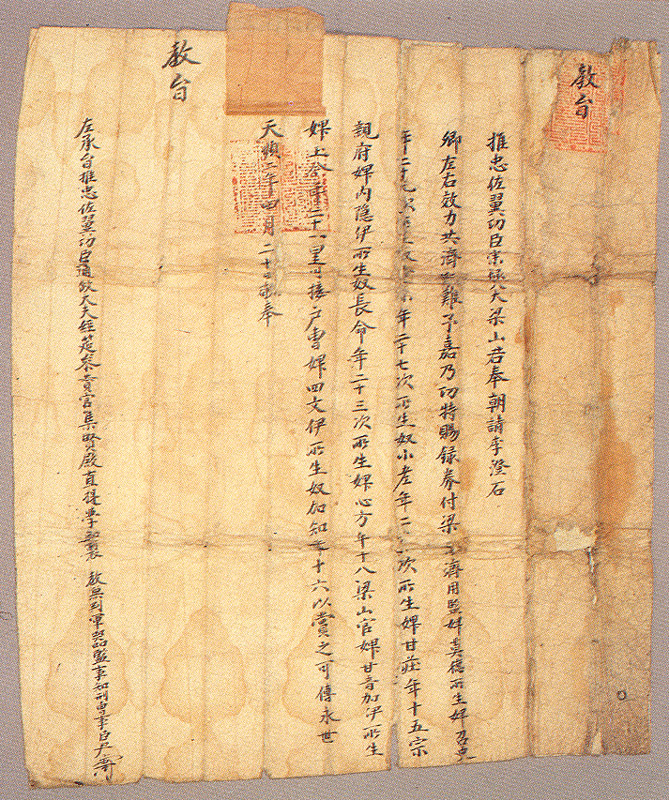 教旨
推忠佐翼功臣崇政大夫梁山君奉朝請李澄石
卿左右效力共濟世難予嘉乃功特賜錄券付梁 濟用監婢 德所生婢召史
年二十九 次所生奴 年二十七次所生奴小老年二 次所生婢甘莊年十五宗
親府婢內隱伊所生奴長命年二十三次所生婢心方年十八梁山官婢甘音加伊所生
婢上 年二十一 接戶曹婢四文伊所生奴加知年十六以賞之可傳永世
天順二年四月二十日 奉
教旨
左承旨推忠佐翼功臣通政大夫經筵參贊官集賢殿直提學知製 教兼判軍器監事知刑曹事臣尹